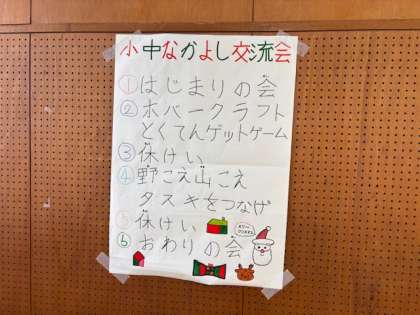 小中なかよし交流会
①はじまりの会
②ホバークラフト
とくてんゲットゲーム
③休けい
④野こえ山こえ
タスキをつなげ
⑤休けい
⑥おわりの会